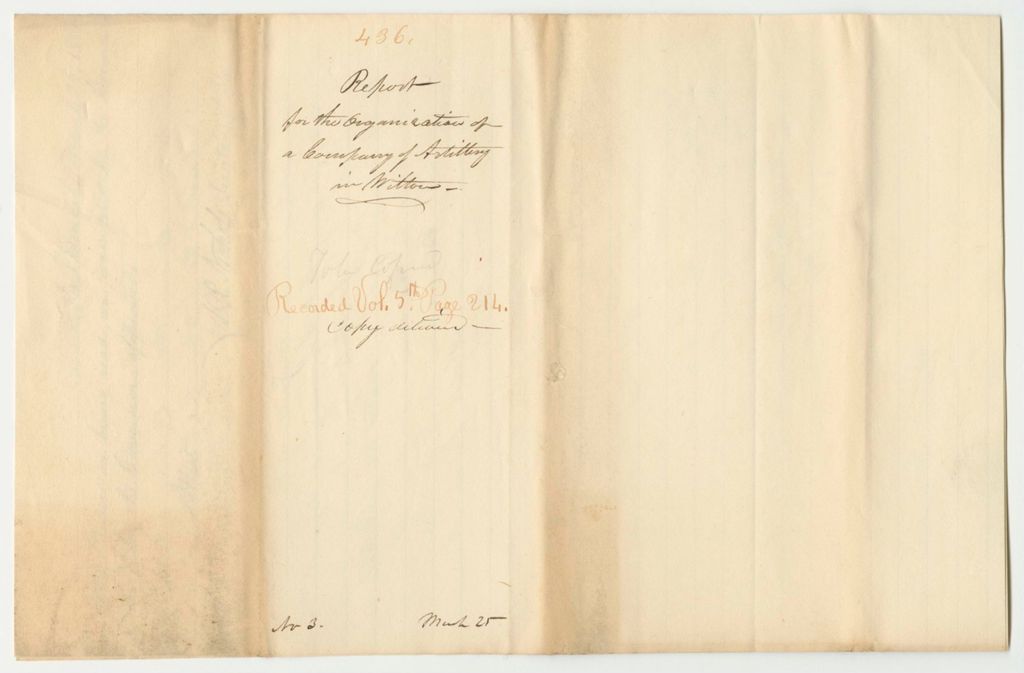 436.
Report
for the Organization of
a Company of Artillery
in Wilton —
To be Copied
Recorded Vol. 5th Page 214.
Copy delivered —
No 3.
March 25